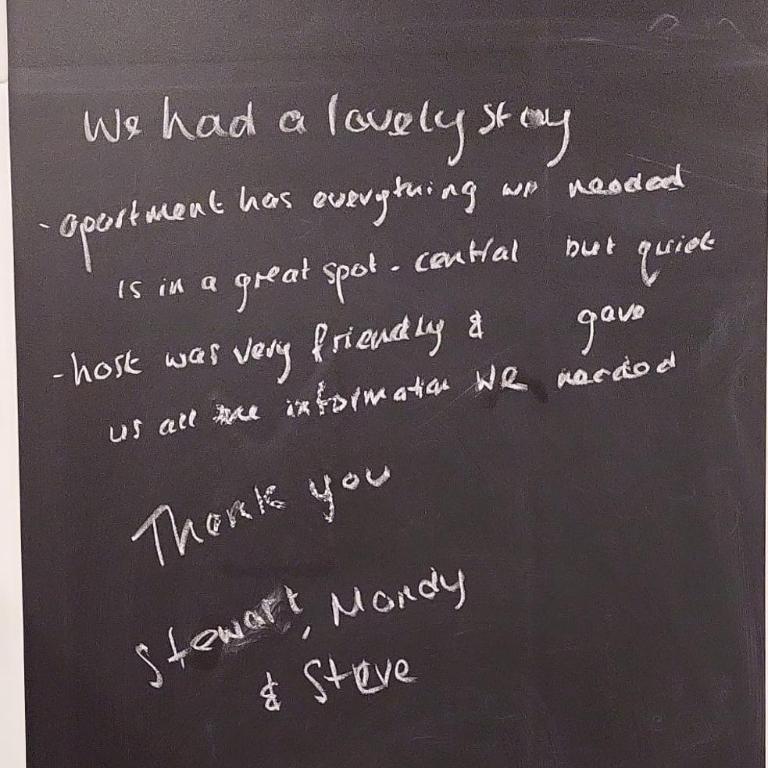 We had a lovely stay
- apartment has everything we needed
is in a great spot - central but quiet
- host was very friendly & gave
us all the information we needed
Thank you
Stewart, Mandy
& Steve